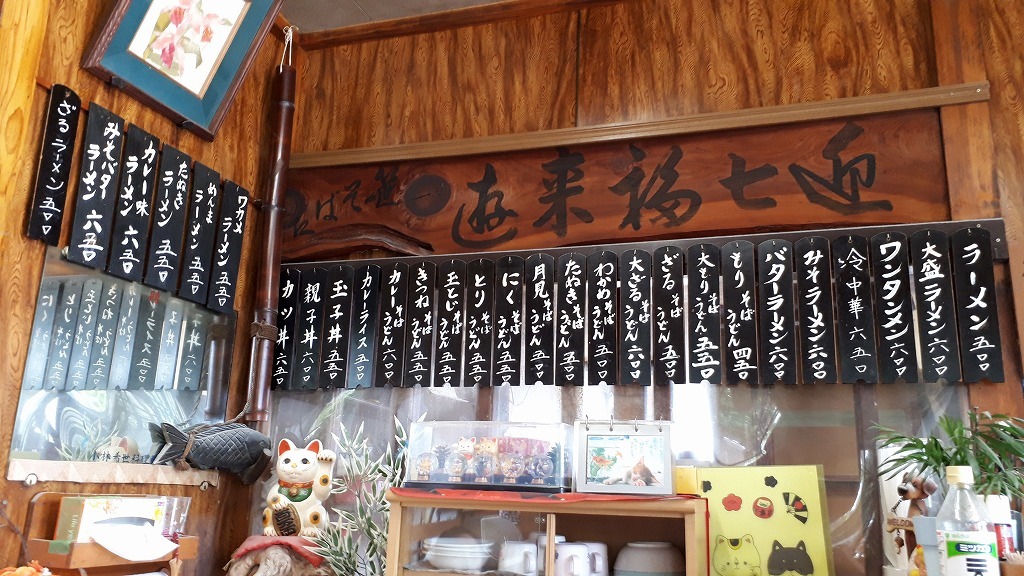 迎七福来遊
ラーメン 五〇〇
大盛ラーメン 五五〇
ワンタンメン 六〇〇
冷中華 六五〇
みそラーメン 六〇〇
バターラーメン 六〇〇
もり そば うどん 四五〇
大もり そば うどん 五五〇
ざる そば うどん 五〇〇
大ざる そば うどん 六〇〇
わかめ そば うどん 五五〇
たぬき そば うどん 五五〇
月見 そば うどん 五五〇
にく そば うどん 五五〇
とり そば うどん 五五〇
玉とじ そば うどん 五五〇
きつね そば うどん 五五〇
カレー そば うどん 六〇〇
カレーライス 五五〇
玉子丼 五五〇
親子丼 六〇〇
カツ丼 六五〇
ワカメラーメン 五五〇
めんまラーメン 五五〇
たぬきラーメン 五五〇
カレー味ラーメン 六五〇
みそバターラーメン 六五〇
ざるラーメン 五五〇
ミツカン